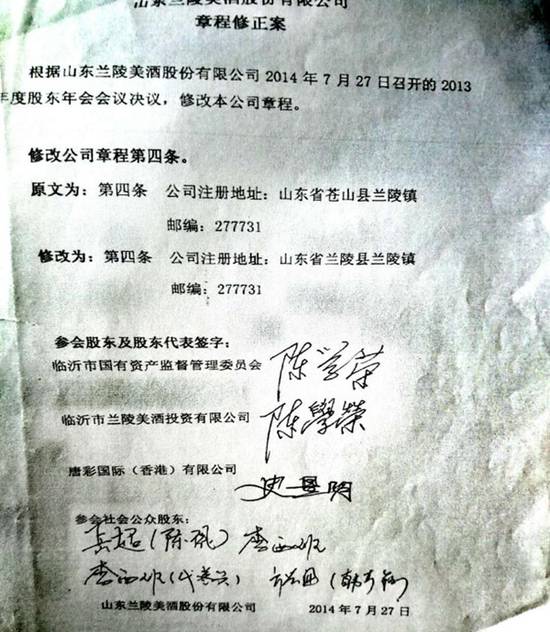 山东兰陵美酒股份有限公司
章程修正案
根据山东兰陵美酒股份有限公司 2014 年 7 月 27 日召开的 2013
年度股东年会会议决议，修改本公司章程。
修改公司章程第四条。
原文为：第四条 公司注册地址：山东省苍山县兰陵镇
邮编：277731
修改为：第四条 公司注册地址：山东省兰陵县兰陵镇
邮编：277731
参会股东及股东代表签字：
临沂市国有资产监督管理委员会 陈学荣
临沂市兰陵美酒投资有限公司 陈學榮
唐彩国际（香港）有限公司
参会社会公众股东：
山东兰陵美酒股份有限公司 2014 年 7 月 27 日